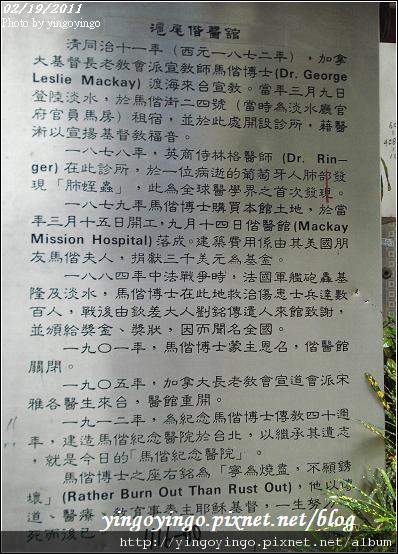 02/19/2011
Photo by yingoyingo
滬尾偕醫館
清同治十一年（西元一八七二年），加拿
大基督長老教會派宣教師馬偕博士(Dr. George
Leslie Mackay) 渡海來台宣教。當年三月九日
登陸淡水，於馬偕街二四號（當時為淡水廳官
府官員馬房）租宿，並於此處開設診所，藉醫
術以宣揚基督教福音。
一八七八年，英商侍林格醫師 (Dr. Rin-
ger) 在此診所，於一位病逝的葡萄牙人肺部發
現「肺蛭蟲」，此為全球醫學界之首次發現。
一八七九年馬偕博士購買本館土地，於當
年三月十五日開工，九月十四日偕醫館(Mackay
Mission Hospital) 落成。建築費用係由其美國朋
友馬偕夫人，捐獻三千美元為基金。
一八八四年中法戰爭時，法國軍艦砲轟基
隆及淡水，馬偕博士在此地救治傷患士兵達數
百人，戰後由欽差大人劉銘傳遣人來館致謝，
並頒給獎金、獎狀，因而聞名全國。
一九〇一年，馬偕博士蒙主恩召，偕醫館
關閉。
一九〇五年，加拿大長老教會宣道會派宋
雅各醫生來台，醫館重開。
一九一二年，為紀念馬偕博士傳教四十週
年，建造馬偕紀念醫院於台北，以繼承其遺志
，就是今日的「馬偕紀念醫院」。
馬偕博士之座右銘為「寧為燒盡，不願銹
壞」(Rather Burn Out Than Rust Out)，他以傳
道、醫療、教育事奉主耶穌基督，一生努力
死而後已。
yingoyingo.pixnet.net/blog
http://yingoyingo.pixnet.net/album